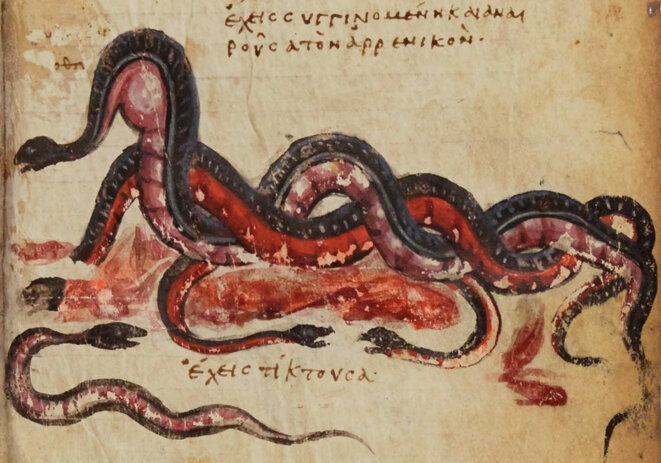 ἔχεις συγγινομένη καὶ ἀναι
ροῦσα τὸν ἀρρενικὸν·
ἔχεις τίκτουσα·